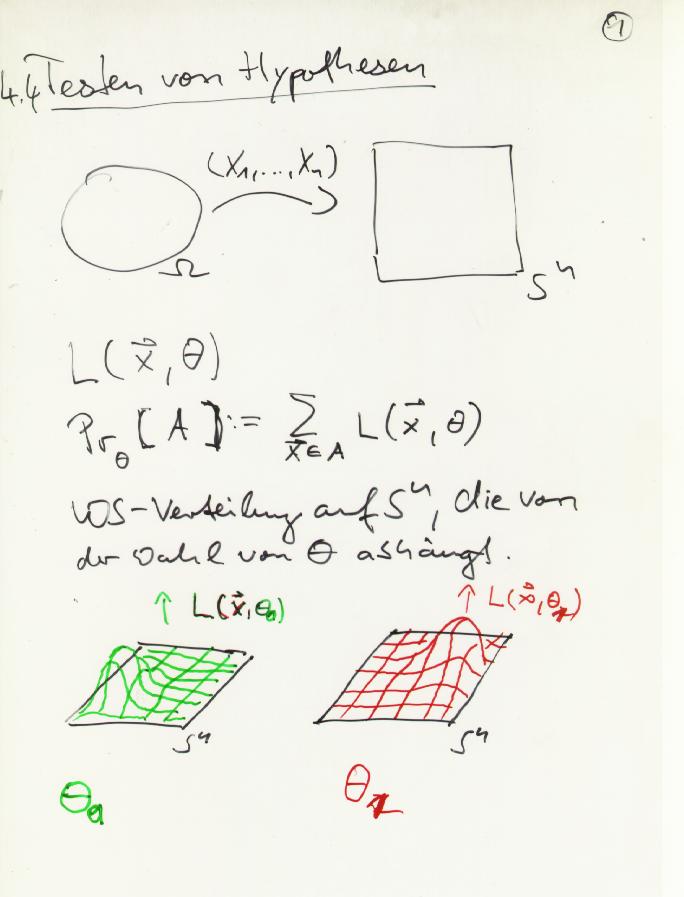 1
4.4 Testen von Hypothesen
(X₁,...,Xₙ)
Ω
Sⁿ
L(x⃗, θ)
Pr_θ[A] := ∑_{x⃗∈A} L(x⃗, θ)
WS-Verteilung auf Sⁿ, die von
der Wahl von θ abhängt.
↑ L(x⃗, θ₀)
↑ L(x⃗, θ₁)
Sⁿ
Sⁿ
θ₀
θ₁